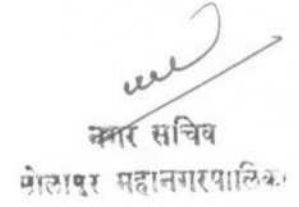 नगर सचिव
सोलापुर महानगरपालिका